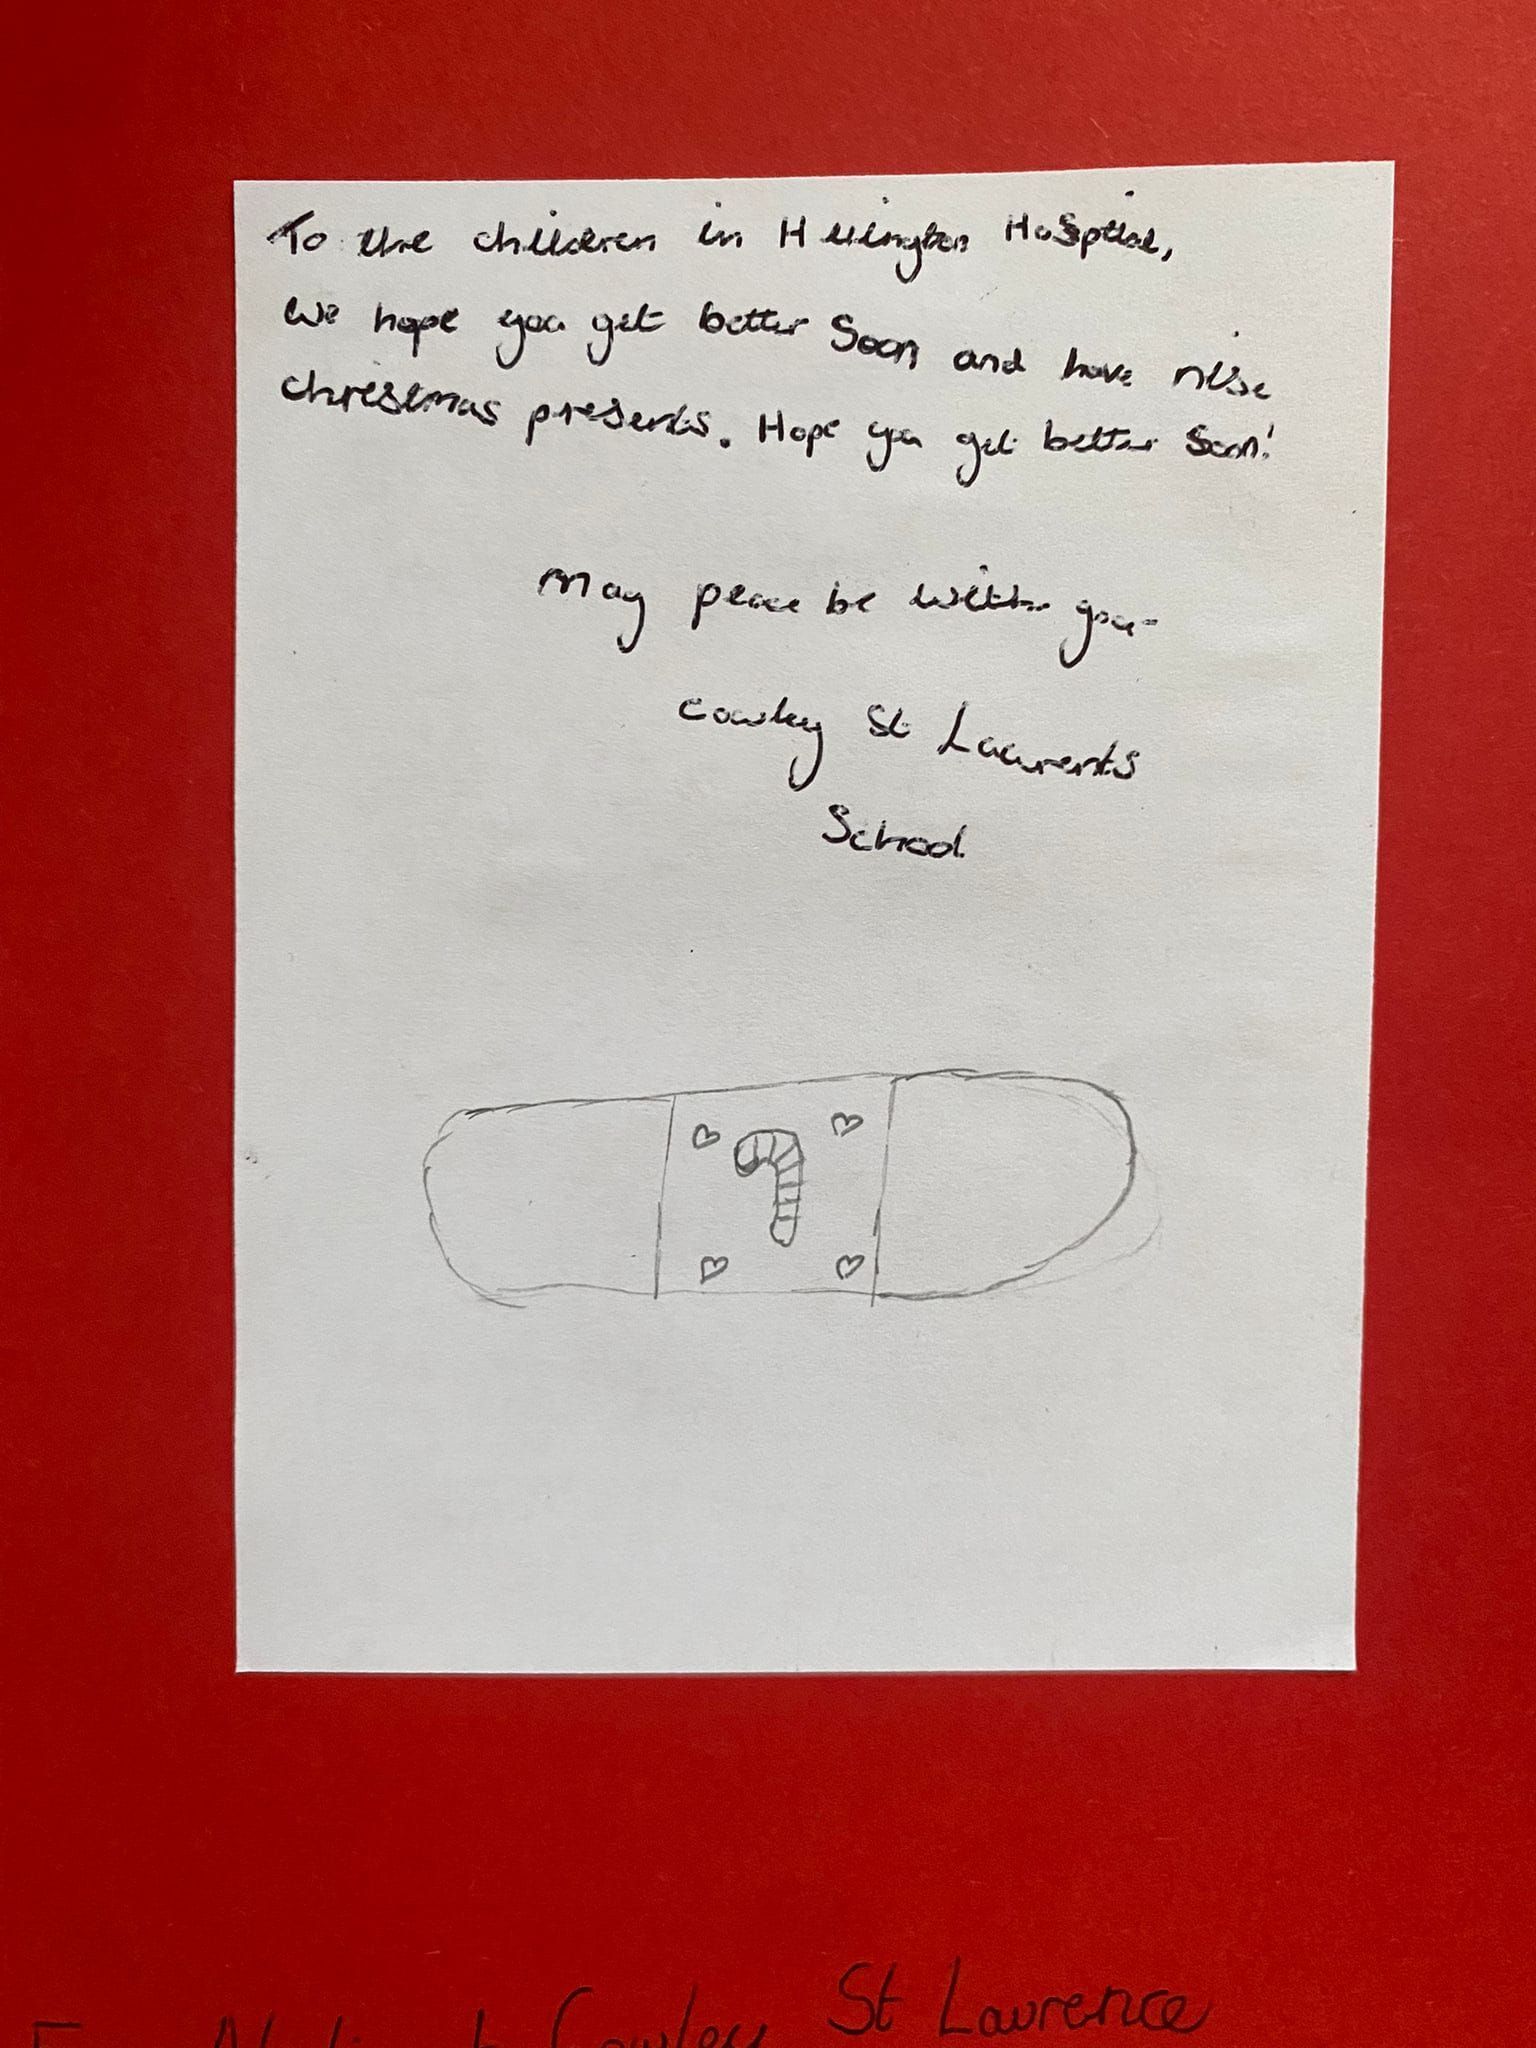 To the children in Hillington Hospital,
We hope you get better Soon and have nise
christmas presents. Hope you get better Soon!
May peace be with you
Cowley St Laurents
School
at Cowley St Laurence